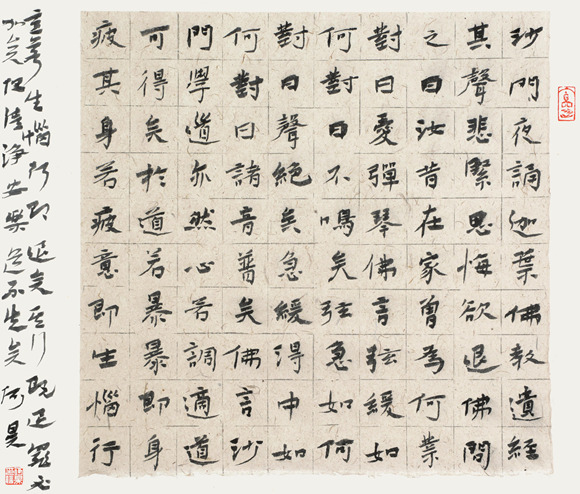 沙門夜誦迦葉佛教遺經
其聲悲緊思悔欲退佛問
之曰汝昔在家曾為何業
對曰愛彈琴佛言弦緩如
何對曰不鳴矣弦急如何
對曰聲絕矣急緩得中如
何對曰諸音普矣佛言沙
門學道亦然心若調適道
可得矣於道若暴暴即身
疲其身若疲意即生惱行
意若生惱行即退矣其行既退罪必
加矣但清淨安樂道不失矣